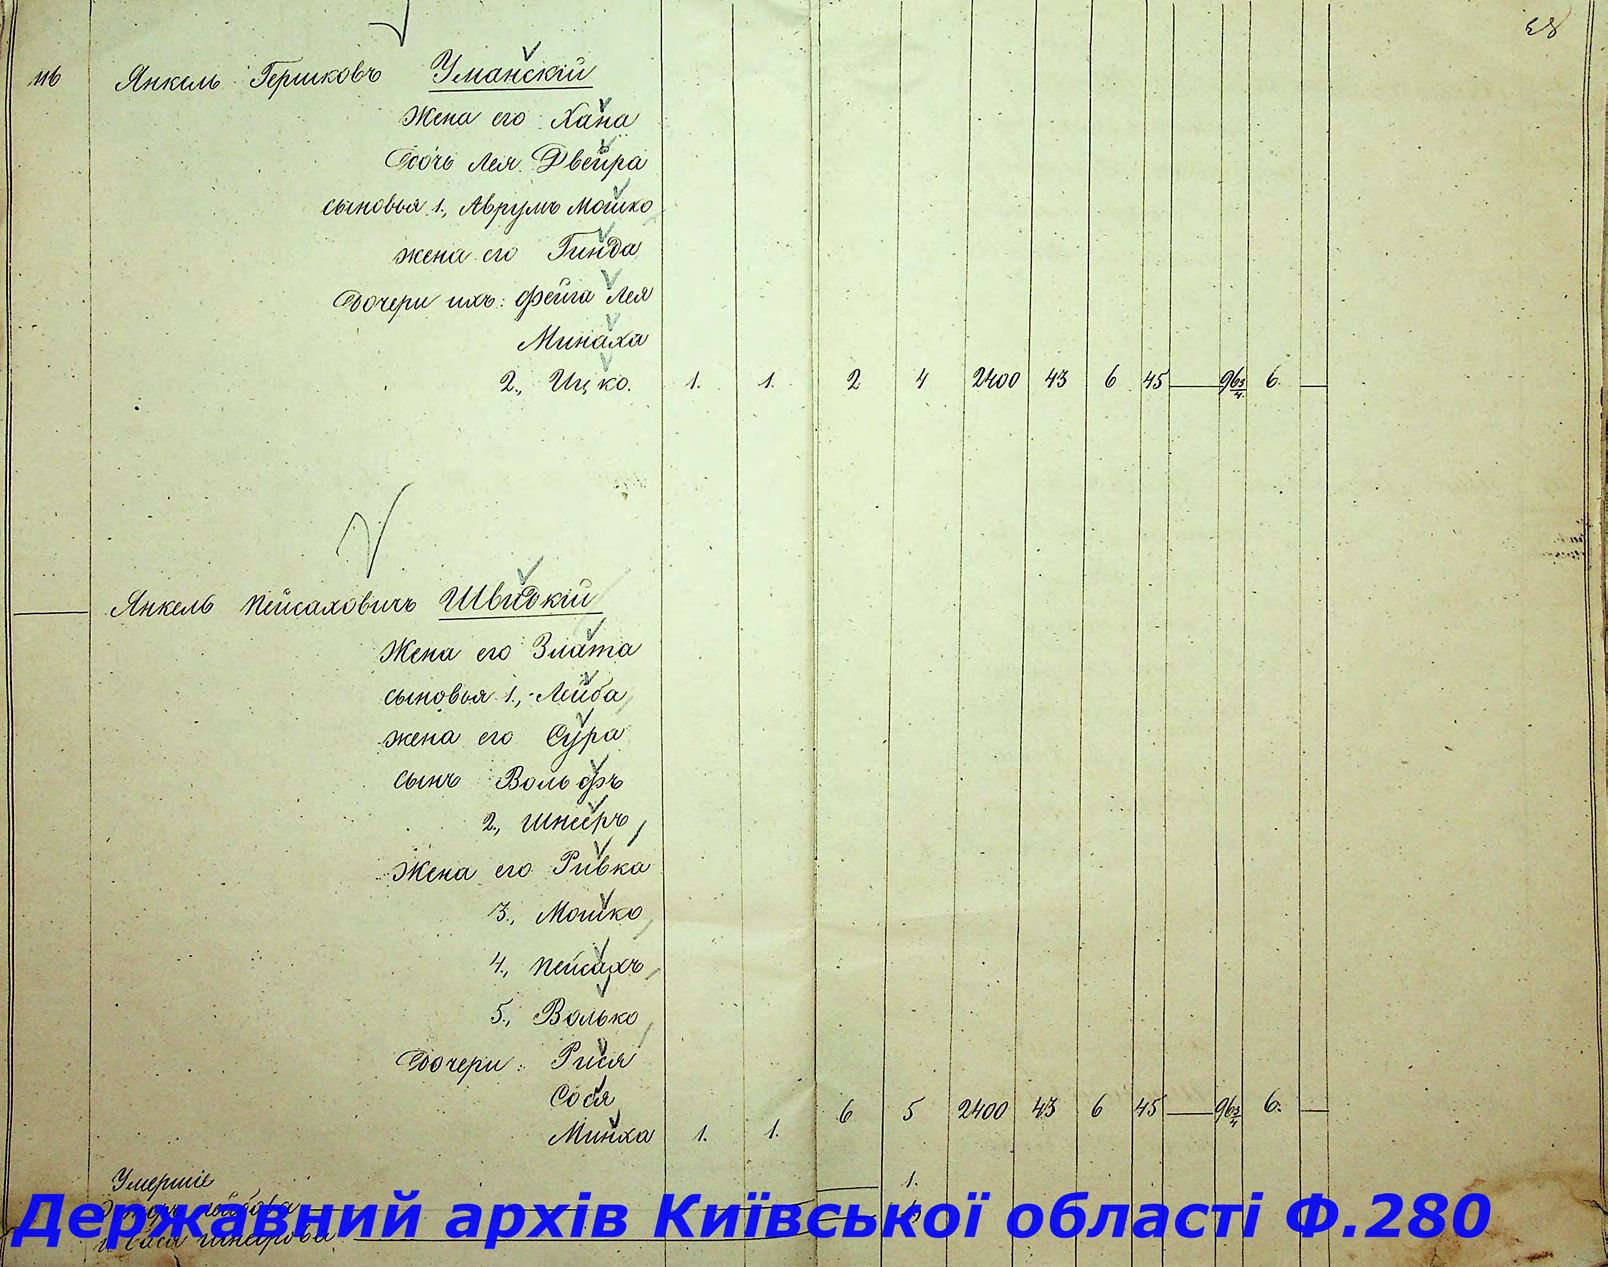 116 Янкель Гершковъ Уманскій
Жена его Хана
Дочь Лея Двейра
сыновья 1., Аврумъ Мошко
жена его Гинда
Дочери ихъ: Фейга Лея
Минаха
2., Ицко. 1. 1. 2 4 2400 43 6 45 — 96 3/4 6. —
Янкель Пейсаховичъ Швидкій
Жена его Злата
сыновья 1., Лейба
жена его Сура
сынъ Вольфъ
2., Шнееръ
Жена его Ривка
3., Мошко
4., Пейсахъ
5., Волько
Дочери: Рися
Сося
Минха 1. 1. 6 5 2400 43 6 45 — 96 3/4 6. —
Умершіе
1.
Державний архів Київської області Ф.280